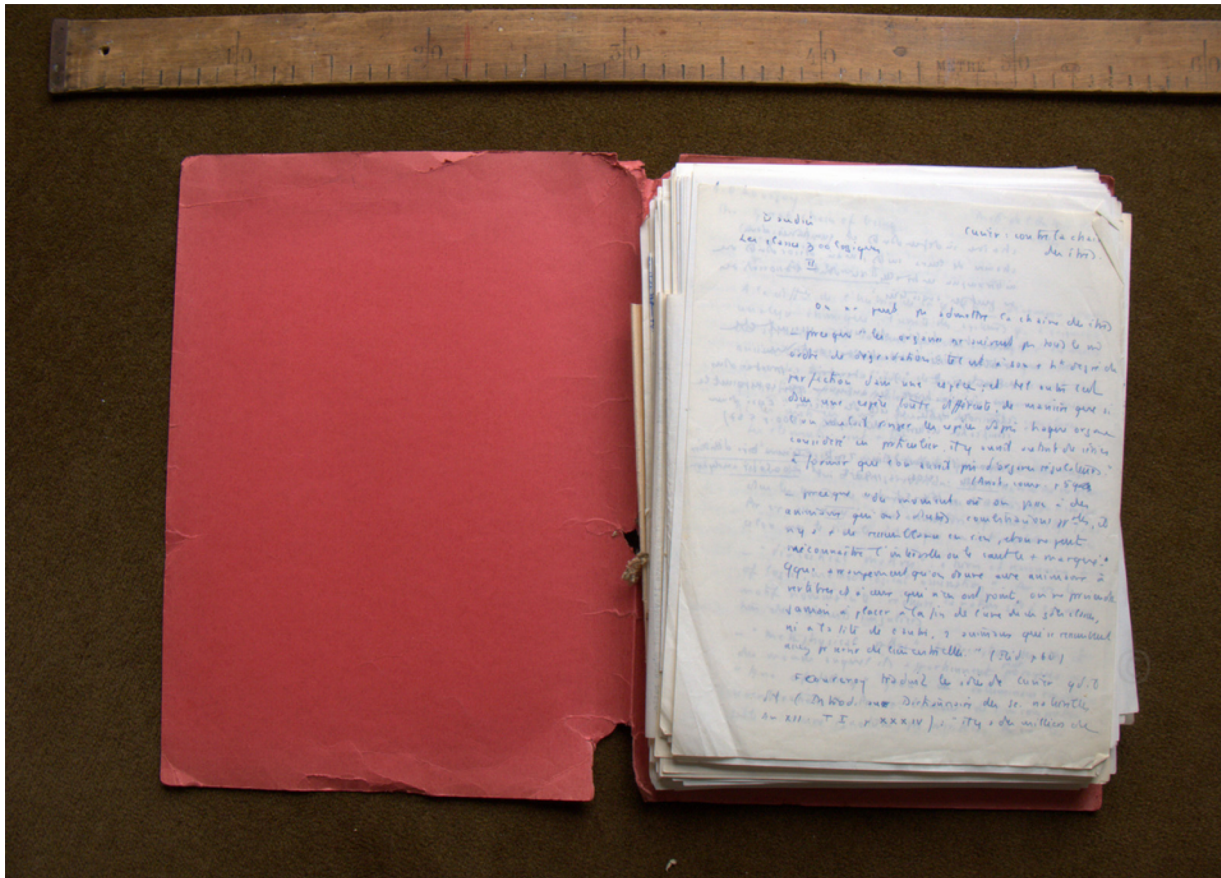 10 20 30 40 MÈTRE 50 60
Daudin
Cuvier : contre la chaîne
Les classes zoologiques
des êtres.
II
On ne peut pas admettre la chaîne des êtres
- parce que les organes ne suivent pas tous le m̂
ordre de dégradation. tel est à son + ht degré de
perfection dans une espèce, et tel autre l'est
dans une espèce toute différente, de manière que si
l'on voulait ranger les espèces d'après chaque organe
considéré en particulier, il y aurait autant de séries
à former que l'on aurait pris d'organes régulateurs."
(Anat. comp.
- parce que "du moment où on passe à des
animaux qui ont d'autres combinaisons
n'y a + de ressemblance en rien, et on ne peut
méconnaître l'intervalle ou le saut le + marqué."
Qque arrangement qu'on donne aux animaux à
vertèbres et à ceux qui n'en ont point, on ne parviendra
jamais à placer à la fin de l'une de ces gdes classes,
ni à la tête de l'autre, 2 animaux qui se ressemblent
assez pr servir de lien entre elles." (Ibid p 60)
Fourcroy traduit les idées de Cuvier qd il
dit (Introd. au Dictionnaire des sc. naturelles
An XII T I, p XXXIV) : "il y a des milliers de